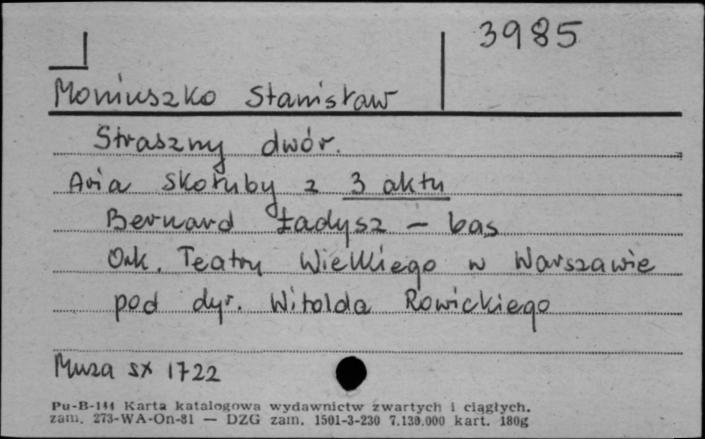 3985
Moniuszko Stanisław
Straszny dwór.
Aria Skołuby z 3 aktu
Bernard Ładysz – bas
Ork. Teatru Wielkiego w Warszawie
pod dyr. Witolda Rowickiego
Muza SX 1722
Pu-B-144 Karta katalogowa wydawnictw zwartych i ciągłych.
zam. 273-WA-On-81 — DZG zam. 1501-3-230 7.130.000 kart. 180g